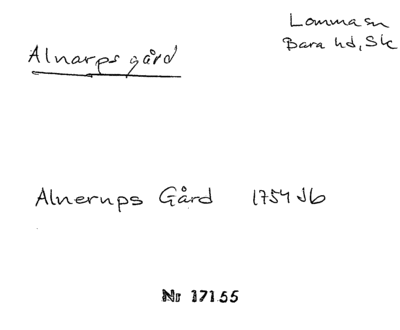 Lomma sn
Bara hd, Sk
Alnarps gård
Alnerups Gård 1754 Jb
Nr 17155